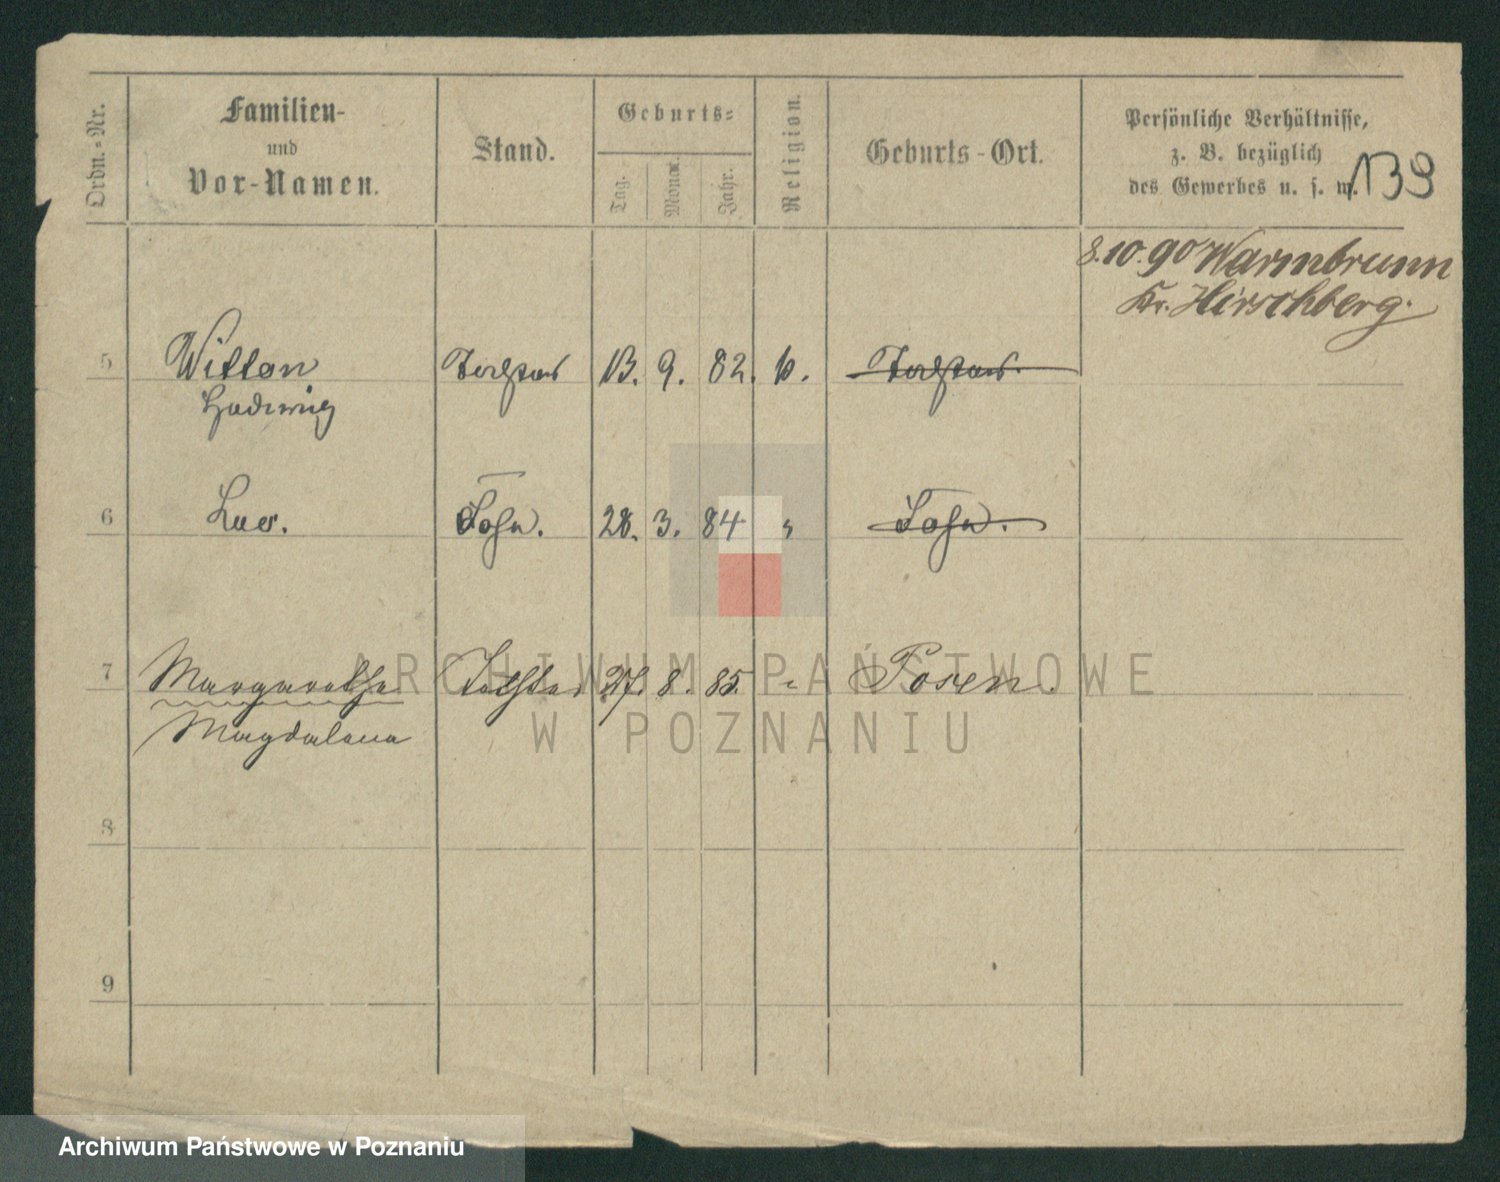 Ordn.-Nr.
Familien-
und
Vor-Namen.
Stand.
Geburts-
Tag.
Monat.
Jahr.
Religion.
Geburts-Ort.
Persönliche Verhältnisse,
z. B. bezüglich
des Gewerbes u. s. w.
139
8.10.90 Warmbrunn
Kr. Hirschberg.
5 13. 9. 82.
Hedwig
6 Leo. Sohn. 28. 3. 84 " Sohn.
7 Margarethe Tochter 27. 8. 85. " Posen.
Magdalena
8
9
ARCHIWUM PAŃSTWOWE
W POZNANIU
Archiwum Państwowe w Poznaniu